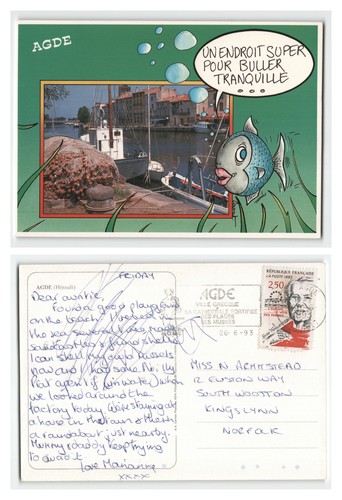 AGDE
UN ENDROIT SUPER
POUR BULLER
TRANQUILLE
...
AGDE (Hérault)
FRIDAY
Dear auntie
Found a good playground
on the beach. I
the sea several times, made
sandcastles & found shells.
I can shell my own mussels
now and
when
we looked around the
factory today. We're staying at
a house in the
a roundabout just nearby.
Mummy & daddy keep trying
to avoid it.
love Marianne
xxxx
AGDE
VILLE GRECQUE
SA CATHEDRALE FORTIFIEE
SES PLAGES
SES MUSEES
26-6-93
RÉPUBLIQUE FRANÇAISE
LA POSTE 1993
2,50
MISS N ARMITSTEAD
12 ELLISON WAY
SOUTH WOOTTON
KINGS LYNN
NORFOLK